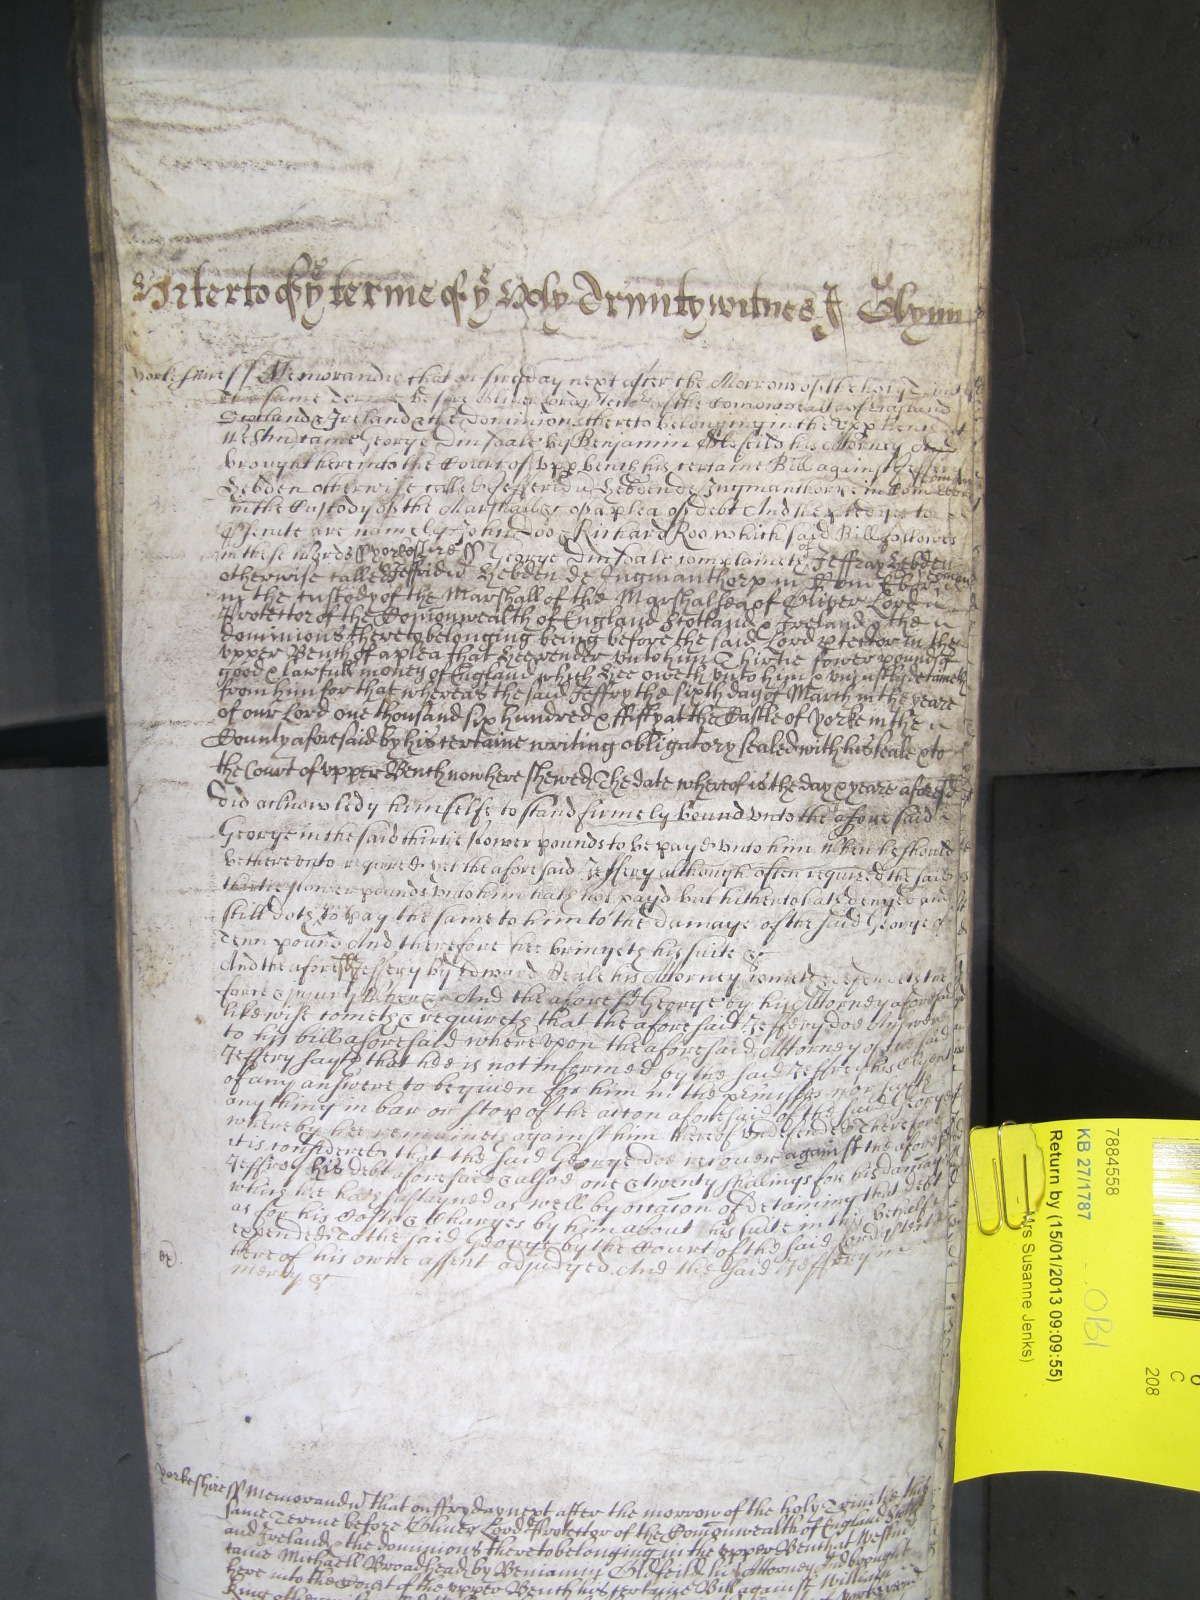 yet of ye terme of ye Holy Trinity witnes J Glynn
Yorkshire ss Memorandu that on fryday next after the Morrow of the holy Trinity
this same Terme before Oliver Lord Protector of the Comonwealth of England
Scotland & Ireland & the Dominions thereto belonging in the Upp Bench at
Westmr came George Dinsdale by Benjamin Oldfeild his Attorney And
brought here into the Court of Upp bench his certaine Bill against Jeffery
Hebden otherwise called Jefferidu Hebden de Ingmanthorpe in Com Ebor
in the Custody of the Marshall &c of a plea of debt And there are pledges to
psecute are namely John Doo & Richard Roo which said Bill followes
in these words ss Yorkeshire ss George Dinsdale complaineth of Jeffray Hebden
otherwise called Jeffridu Hebden de Ingmanthorp in Com Ebor
in the custody of the Marshall of the Marshalsea of Oliver Lord
Protector of the Comonwealth of England Scotland & Ireland & the
dominions thereto belonging being before the said Lord Ptector in the
upper Bench of a plea that hee render unto him Thirtie fower pounds of
good & lawfull money of England which hee oweth unto him & uniustly detaineth
from him for that whereas the said Jeffry the sixth day of March in the yeare
of our Lord one thousand six hundred & fiffty at the Castle of Yorke in the
County aforesaid by his certaine writing obligatory sealed with his seale & to
the Court of upper Bench now here shewed The date whereof is the day & yeare aforesd
did acknowledg himselfe to stand firmely bound unto the afore said
George in the said thirtie fower pounds to be payd unto him when he should
be thereunto required yet the aforesaid Jeffery although often required the said
thirtie fower pounds unto him hath not payd but hitherto hath denyed and
still doth to pay the same to him to the damage of the said George of
Tenn pounds And therefore hee bringeth his suite &c
And the aforesd Jeffery by Edward Heale his Attorney cometh & defendeth the
force & iniury when &c And the aforesd George by his Attorney aforesaid
likewise cometh & requireth that the aforesaid Jeffery doe Answere
to his bill aforesaid whereupon the aforesaid Attorney of the said
Jeffery sayth that hee is not informed by the said Jeffrey his Clyent
of any answere to be given for him in the pmisses nor sayth
any thing in bar or stop of the accon aforesaid of the said George
whereby hee remaineth against him thereof undefended Therefore
it is considered that the said George doe recover against the aforesd
Jeffrey his debt aforesaid & alsoe one & twenty shillings for his damages
which hee hath sustayned as well by occasion of detaining that debt
as for his Costs & Charges by him about his suite in this behalfe
expended to the said George by the Court of the said Lord Ptector
thereof his owne assent adjudged And the said Jeffery in
mercy &c
Yorkeshire ss Memorandu that on ffryday next after the morrow of the holy Trinitie this
same Terme before Oliver Lord Protector of the Comonwealth of England Scotland
and Ireland & the dominions thereto belonging in the upper Bench at Westmr
came Michaell Broadhead by Beniamin Oldfeild his Attorney And brought
here into the Court of the upper Bench his certaine Bill against William
King otherwise
7884558
KB 27/1787
Return by (15/01/2013 09:09:55)
Mrs Susanne Jenks)
OBI
C
208